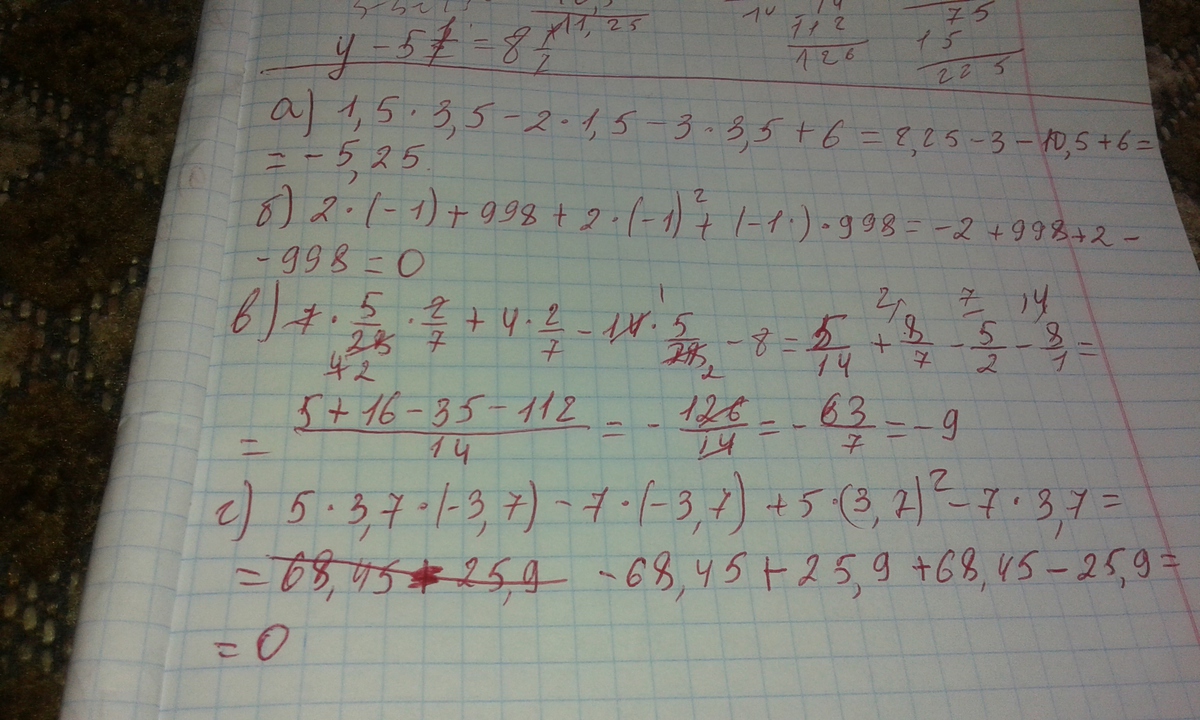 11,25 14 75
112 15
y - 5 1/7 = 8 1/2 126 225
а) 1,5 · 3,5 - 2 · 1,5 - 3 · 3,5 + 6 = 2,25 - 3 - 10,5 + 6 =
= - 5,25
б) 2 · (-1) + 998 + 2 · (-1)² + (-1·) · 998 = -2 + 998 + 2 -
- 998 = 0
в) 7 · 5/28 · 2/7 + 4 · 2/7 - 14 · 5/28 - 8 = 5/14 + 8/7 - 5/2 - 8/1 =
= (5 + 16 - 35 - 112)/14 = - 126/14 = - 63/7 = - 9
г) 5 · 3,7 · (-3,7) - 7 · (-3,7) + 5 · (3,7)² - 7 · 3,7 =
= 68,45 + 25,9 - 68,45 + 25,9 + 68,45 - 25,9 =
= 0